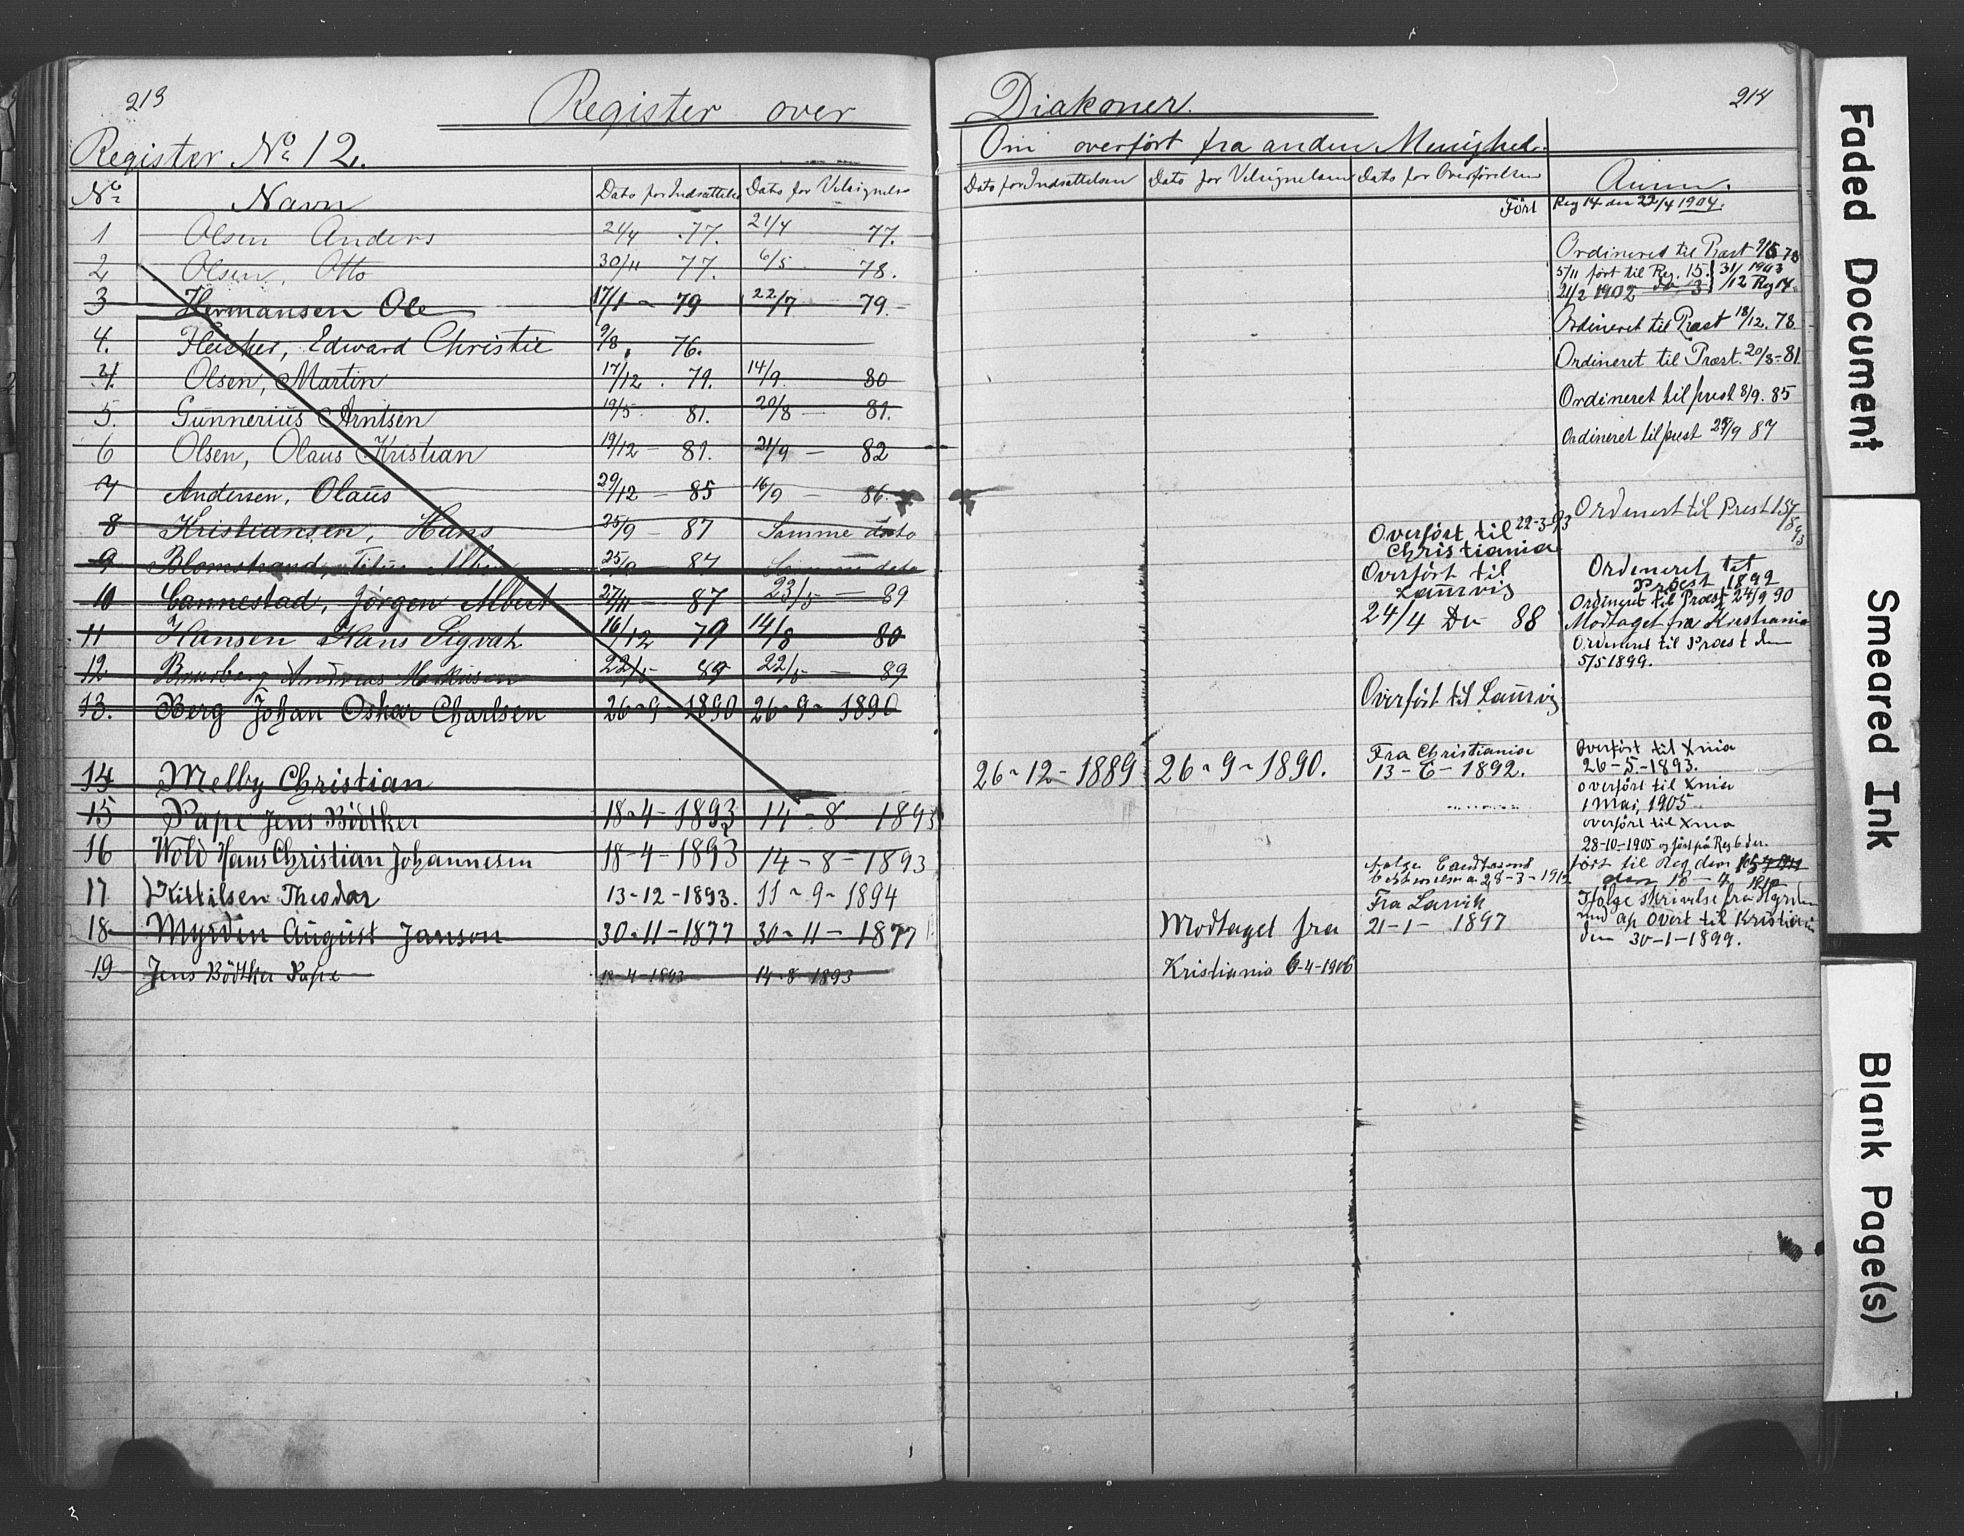 213
Register over Diakoner.
214
Register No 12.
Om overført fra anden Menighed.
No Navn Dato for Indsættelse Dato for Velsignelse Dato for Indsættelsen Dato for Velsignelsen Dato for Overførelsen Anm.
Ført Reg 14 den 22/4 1904.
1 Olsen Anders 24/4 77. 21/4 77.
Ordineret til Præst
2 Olsen, Otto 30/11 77. 6/5 78.
5/11 ført til Reg. 15. 31/ 1903
21/2 1902 do 3 /12 Reg 14
3 Hermansen Ole 17/1 - 79 22/7 79.
Ordineret til Præst 18/12. 78
4. Fleicher, Edward Christie 9/8. 76.
Ordineret til Præst. 20/3-81
4. Olsen, Martin 17/12. 79. 14/9. 80
Ordineret til prest 8/9. 85
5. Gunnerius Arntsen 19/5. 81. 20/8 - 81.
Ordineret til prest 29/9 87
6 Olsen, Olaus Kristian 19/12 - 81. 21/9 - 82
7 Andersen, Olaüs 29/12 - 85 16/9 - 86.
Ordineret til Prest
8 Kristiansen, Hans 25/9 - 87 Samme dato Overført til 22-3-93
Christiania
9 Blomstrand, Titus 25/9 - 87 Samme dato Overført til
Laurvig
Ordineret til
Præst 1892
10 Cannestad, Jørgen Albert 27/11 - 87 23/5 - 89
Ordineret til Præst 24/9 90
11 Hansen Hans Sigvah 16/12 79 14/8 80 24/4 Do 88 Modtaget fra Kristiania
Ordineret til Præst den
5/5 1899.
12 Andreas 22/5 89 22/5 - 89
13. Berg Johan Oskar Charlsen 26-9-1890 26-9-1890 Overført til Laurvig
14 Melby Christian 26-12-1889 26-9-1890. Fra Christiania
13-6-1892.
Overført til Xnia
26-5-1893.
15 Pape Jens Bödtker 18-4-1893 14-8-1893
overført til Xnia
1 Mai, 1905
16 Wold Hans Christian Johannesen 18-4-1893 14-8-1893
overført til Xnia
28-10-1905 og ført på Reg 6 der.
17 Kittilsen Theodor 13-12-1893. 11-9-1894
28-3-1912
ført til Reg den
18 Myrdin August Janson 30-11-1877 30-11-1877 Modtaget fra Fra Larvik
21-1-1897
Ifølge skrivelse fra Myrdin
Overt til Kristiania
den 30-1-1899.
19 Jens Bödtker Pape 18-4-1893 14-8-1893 Kristiania 6-4-1906
Faded Document
Smeared Ink
Blank Page(s)